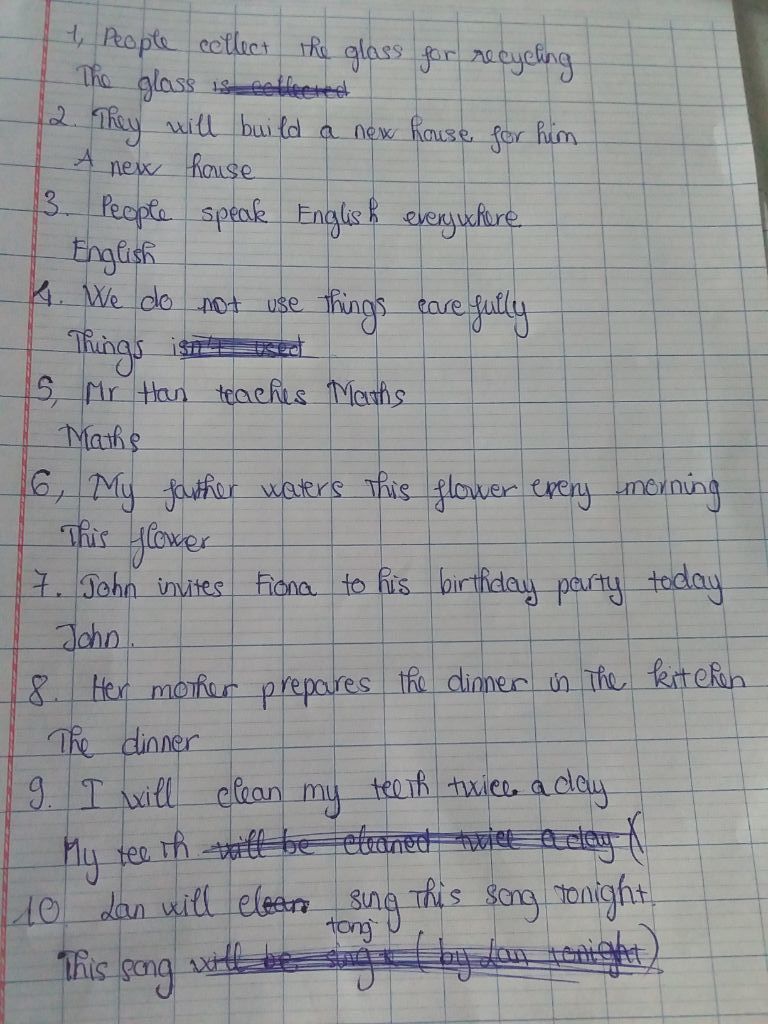 1, People collect the glass for recycling
The glass is collected
2. They will build a new house for him
A new house
3. People speak English everywhere
English
4. We do not use things carefully
Things isn't used
5, Mr Han teaches Maths
Maths
6, My father waters this flower every morning
This flower
7. John invites Fiona to his birthday party today
John.
8. Her mother prepares the dinner in the kitchen
The dinner
9. I will clean my teeth twice a day
My teeth will be cleaned twice a day
10 Lan will clean sing this song tonight
tong
This song will be sung (by Lan tonight)